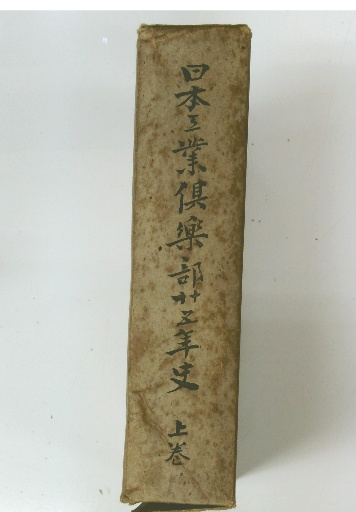 日本工業倶樂部廿五年史 上巻